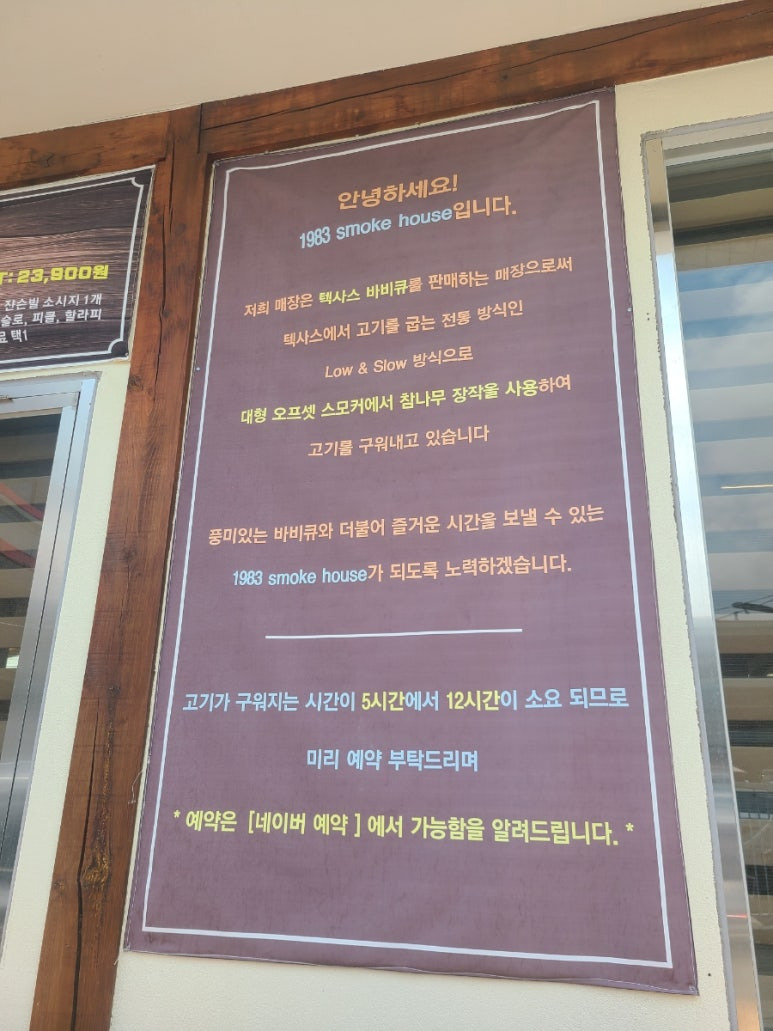 T: 23,900원
쟌슨빌 소시지 1개
슬로, 피클, 할라피
료 택1
안녕하세요!
1983 smoke house입니다.
저희 매장은 텍사스 바비큐를 판매하는 매장으로써
텍사스에서 고기를 굽는 전통 방식인
Low & Slow 방식으로
대형 오프셋 스모커에서 참나무 장작을 사용하여
고기를 구워내고 있습니다
풍미있는 바비큐와 더불어 즐거운 시간을 보낼 수 있는
1983 smoke house가 되도록 노력하겠습니다.
고기가 구워지는 시간이 5시간에서 12시간이 소요 되므로
미리 예약 부탁드리며
* 예약은 [네이버 예약 ] 에서 가능함을 알려드립니다. *